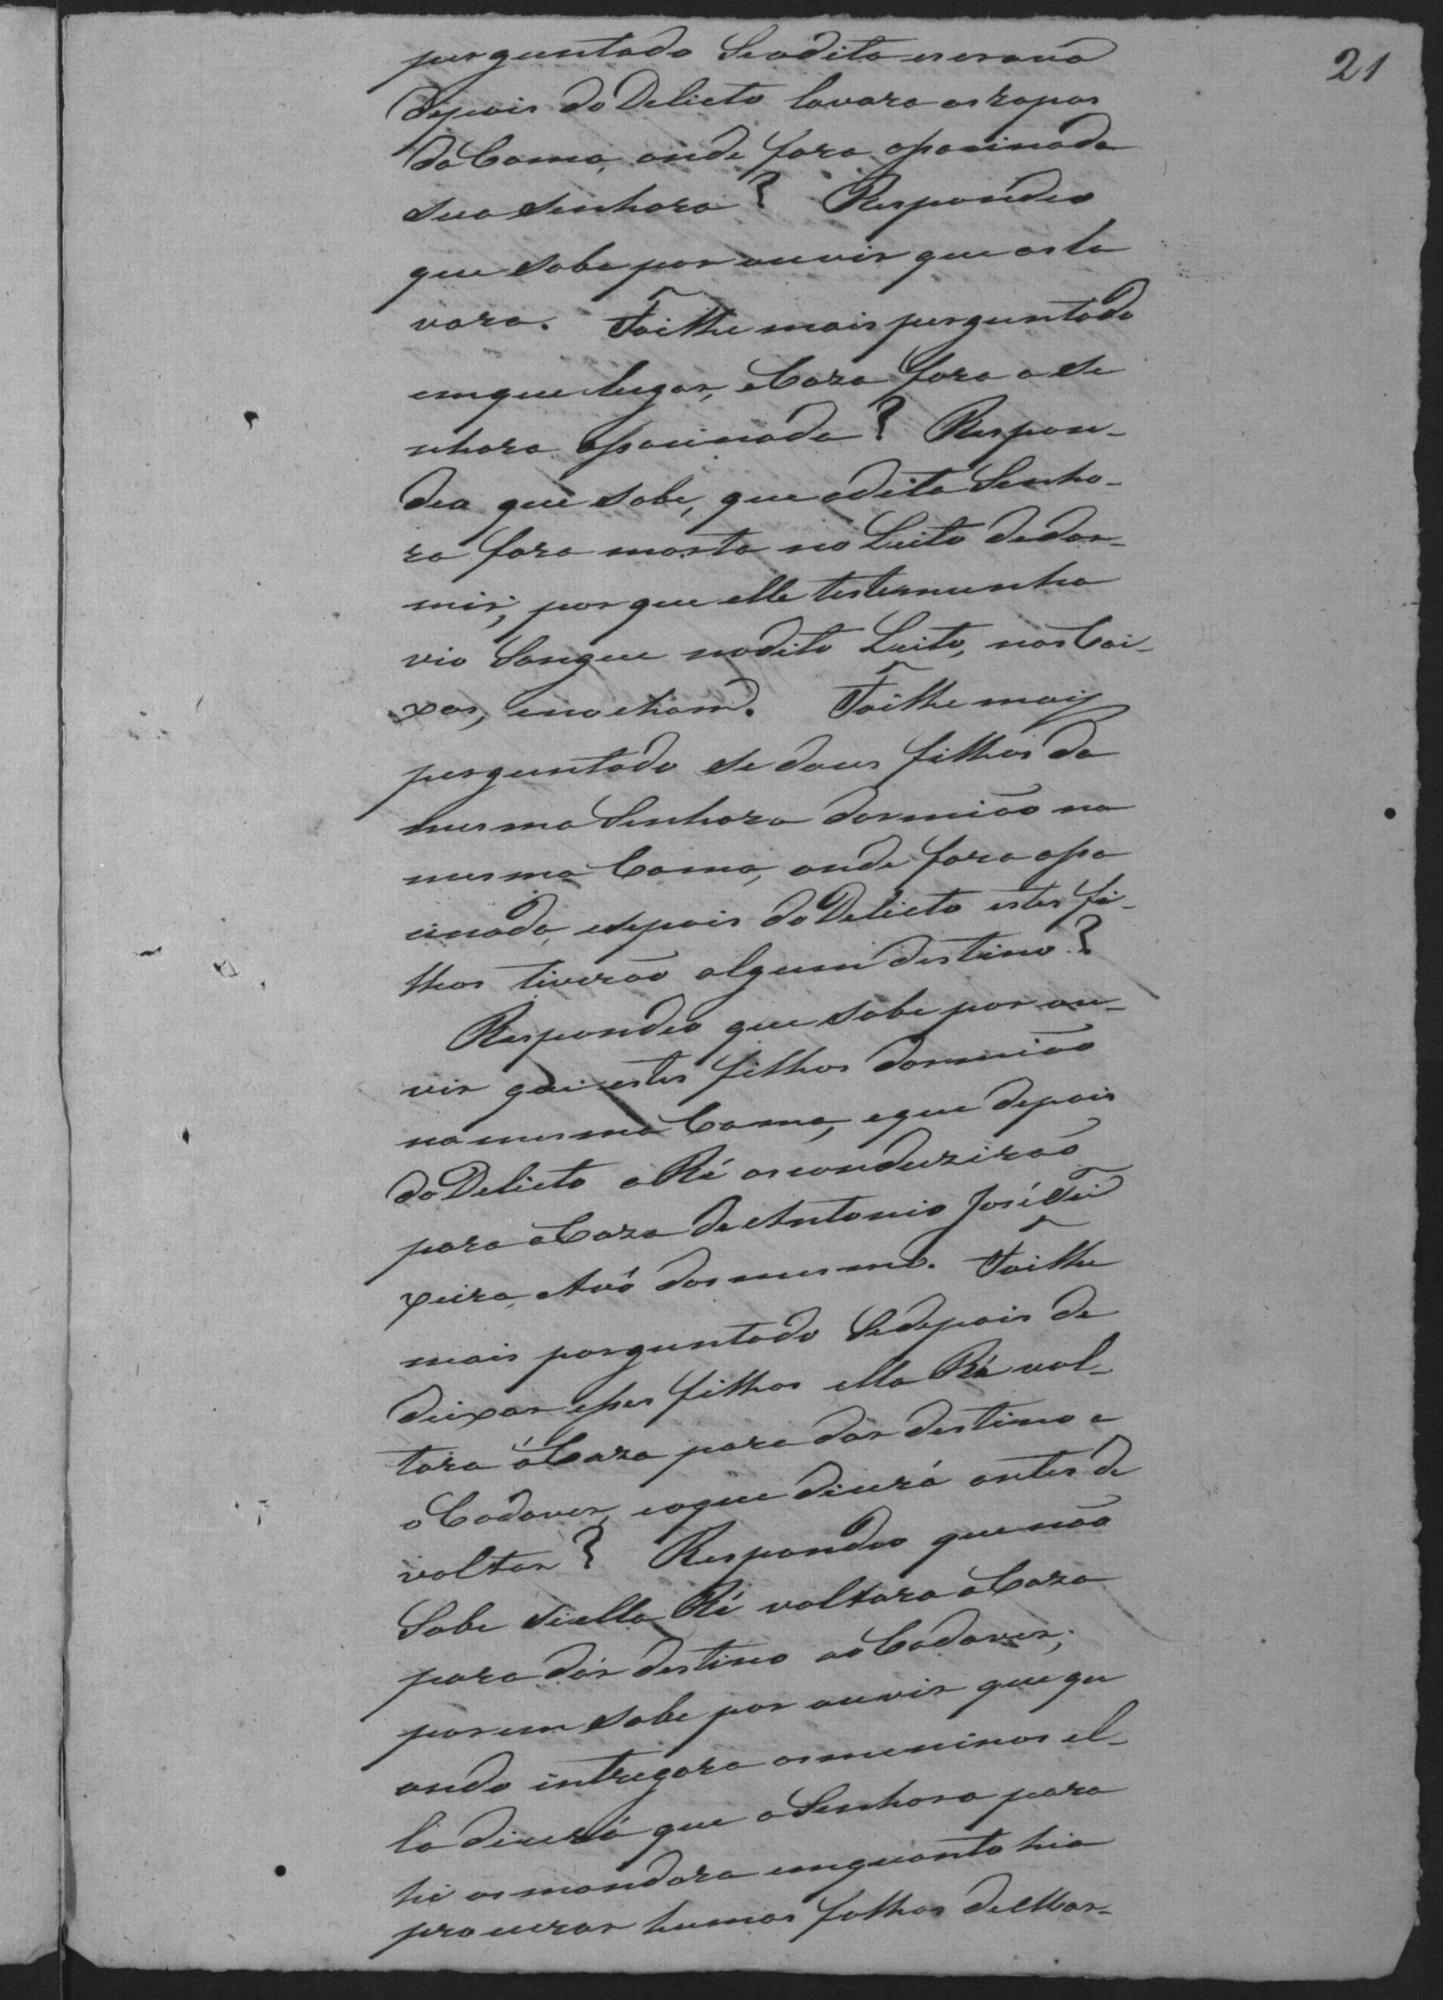 21
perguntado Seadita escrava
depois do Delicto lavara as ropas
da Cama, onde fora assacinada
sua senhora? Respondeo
que sabe por ouvir que as la
vara. Foilhe mais perguntado
em que lugar, e Caza fora a Se
nhora assacinada? Respon-
deo que sabe, que adita Senho-
ra fora morta no Leito de dor-
mir, por que elle testemunha
vio Sangue nodito Leito, nas Cai-
xas, enocham. Foilhe mais
perguntado se dous filhos da
mesma Senhora dormião na
mesma Cama, onde fora assa
cinada, edepois do Delicto estes fi-
lhos tiverão algum destino?
Respondeo que sabe por ou-
vir que estes filhos dormião
na mesma Cama, e que depois
do Delicto a Ré os conduzirão
para a Caza de Antonio José Tei
xeira, Avô dos mesmo. Foilhe
mais perguntado Sedepois de
deixar esses filhos ella Ré vol-
tara á Caza para dar destino a
o Cadaver, eoque dicera antes de
voltar? Respondeo que não
Sabe se ella Ré voltara a Caza
para dár destino ao Cadaver;
porem sabe por ouvir que qu
ando intregara os meninos el-
la dicerá que a Senhora para
hi os mandara emquanto hia
procurar humas folhas de Mar-